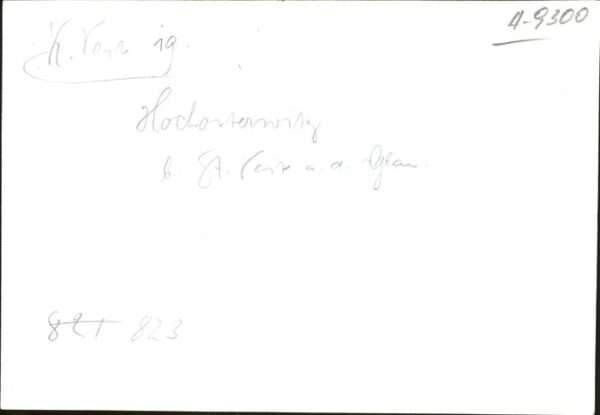 A-9300
K. Veit 19.
Hochosterwitz
b. St. Veit a. d. Glan.
821 823